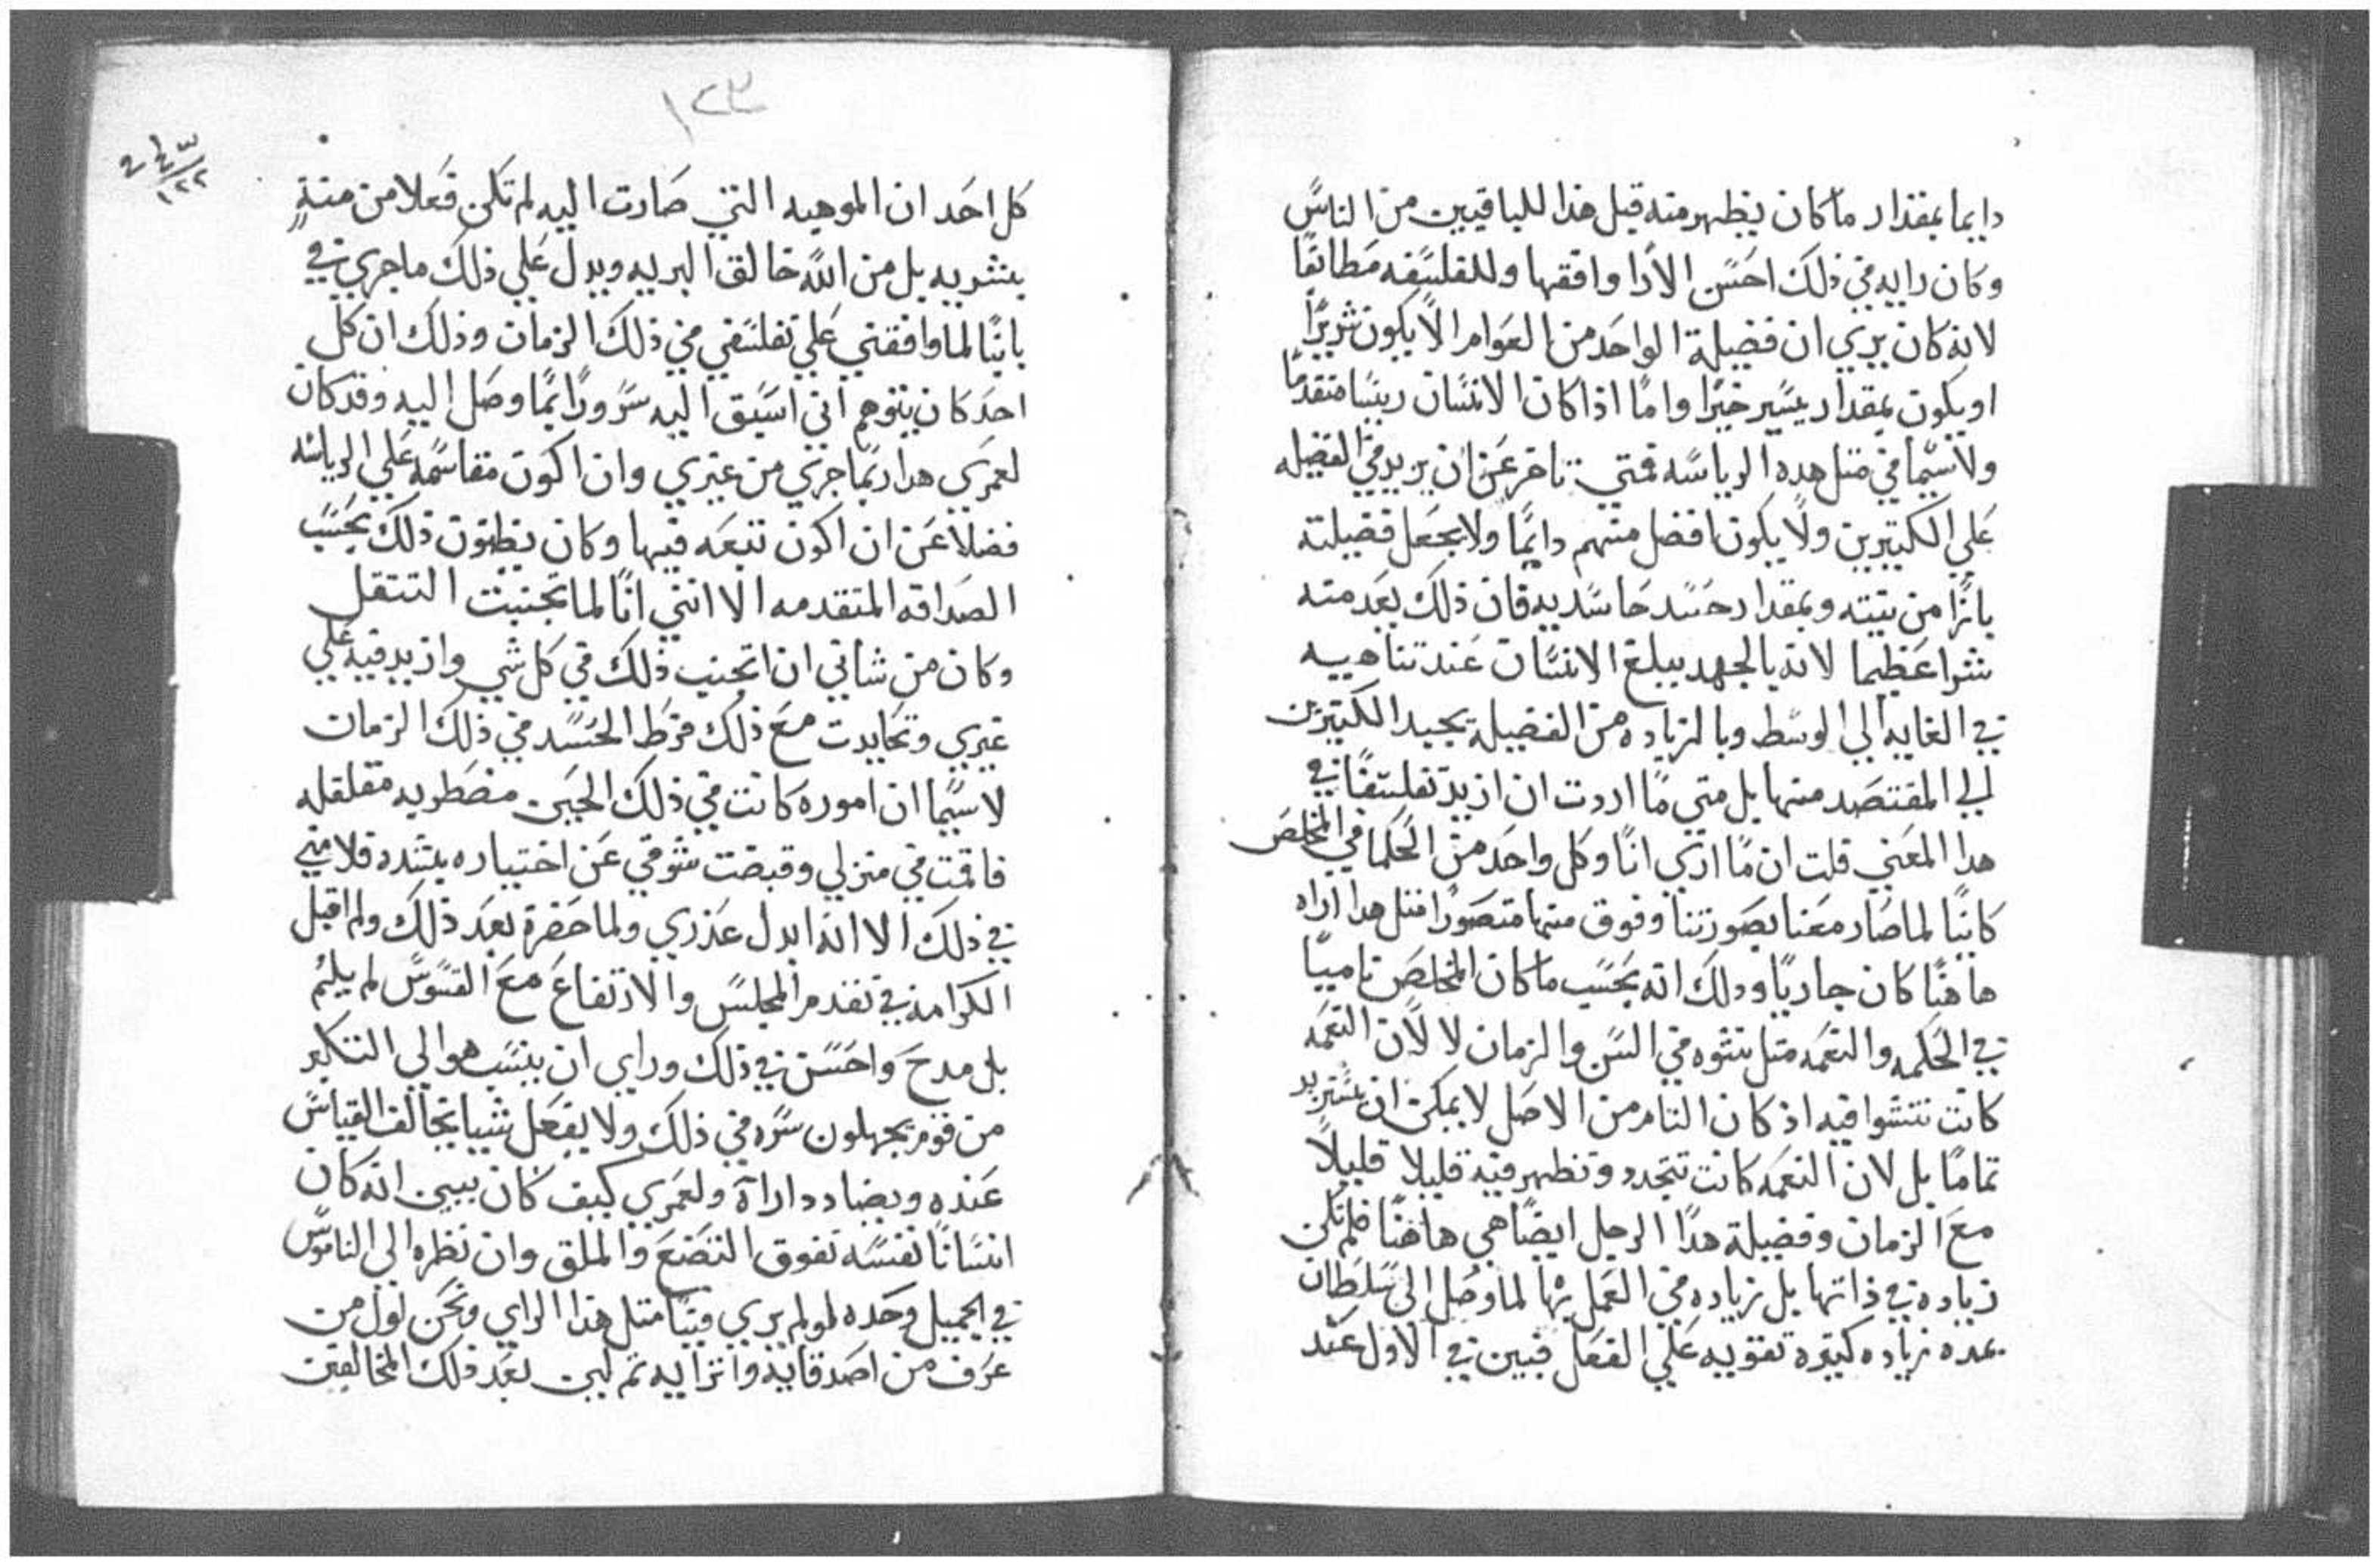 دايما بمقدار ما كان يظهر منه قبل هذا للباقيين من الناس
وكان رايه في ذلك احسن الارا وافقها وللفلسفه مطابقا
لانه كان يري ان فضيلة الواحد من العوام الا يكون شريرا
او يكون بمقدار يسير خيرا واما اذا كان الانسان ريسا متقدما
ولاسيما في مثل هده الرياسه فمتي تاخر عن ان يزيد في الفضيله
علي الكتيرين ولا يكون افضل منهم دايما ولا يجعل فضيلته
بازا من يتبته وبمقدار حسد حاسديه فان ذلك يعد منه
شرا عظيما لانه بالجهد يبلغ الانسان عند تناهيه
في الغايه الي الوسط وبالزياده من الفضيلة يجيد الكتيرين
الي المقتصد منها بل متي ما اردت ان ازيد تفلسفا في
هدا المعني قلت ان ما اري انا وكل واحد من الحكما في المخلص
كاينا لما صار معنا بصورتنا وفوق منها متصورا مثل هدا اراه
هاهنا كان جاريا ودلك انه بحسب ما كان المخلص ناميا
في الحكمه والنعمه مثل نشوه في السن والزمان لا لان النعمه
كانت تنشوا فيه اذ كان التام من الاصل لا يمكن ان يستزيد
تماما بل لان النعمه كانت تتجدد وتظهر فيه قليلا قليلا
مع الزمان وفضيلة هدا الرجل ايضا هي هاهنا فلم تكن
زياده في ذاتها بل زياده في العمل بها لما وصل الي سلطان
عده زياده كتيره تقويه علي الفعل فبين في الاول عند
١٢٣
كل احد ان الموهبه التي صارت اليه لم تكن فعلا من منة
بشريه بل من الله خالق البريه ويدل علي ذلك ما جري في
بابنا لما وافقني علي تفلسفي في ذلك الزمان وذلك ان كل
احد كان يتوهم اني اسبق اليه سرورا بما وصل اليه وقد كان
لعمري هدا ربما جري من غيري وان اكون مقاسمه علي الرياسه
فضلا عن ان اكون تبعه فيها وكان يظنون ذلك بحسب
الصداقه المتقدمه الا انني انا لما تجنبت التتقل
وكان من شاني ان اتجنب ذلك في كل شي وازيد فيه علي
غيري وتحايدت مع ذلك فرط الحسد في ذلك الزمان
لاسيما ان اموره كانت في ذلك الحين مضطربه مقلقله
فاقمت في منزلي وقبضت شوقي عن اختياره بشده فلامني
في ذلك الا انه ابدل عذري ولما حضرة بعد ذلك ولم اقبل
الكرامة في تقدم المجلس والارتفاع مع القسوس لم يلم
بل مدح واحسن في ذلك وراي ان ينسب هو الي التكبر
من قوم يجهلون سره في ذلك ولا يفعل شيا يخالف القياس
عنده ويضادد اراة ولعمري كيف كان يبين انه كان
انسانا نفسه تفوق التصنع والملق وان نظره الي الناموس
في الجميل وحده لو لم يري فينا مثل هذا الراي ونحن اول من
عرف من اصدقايه واترابيه تم لين بعد ذلك المخالفين